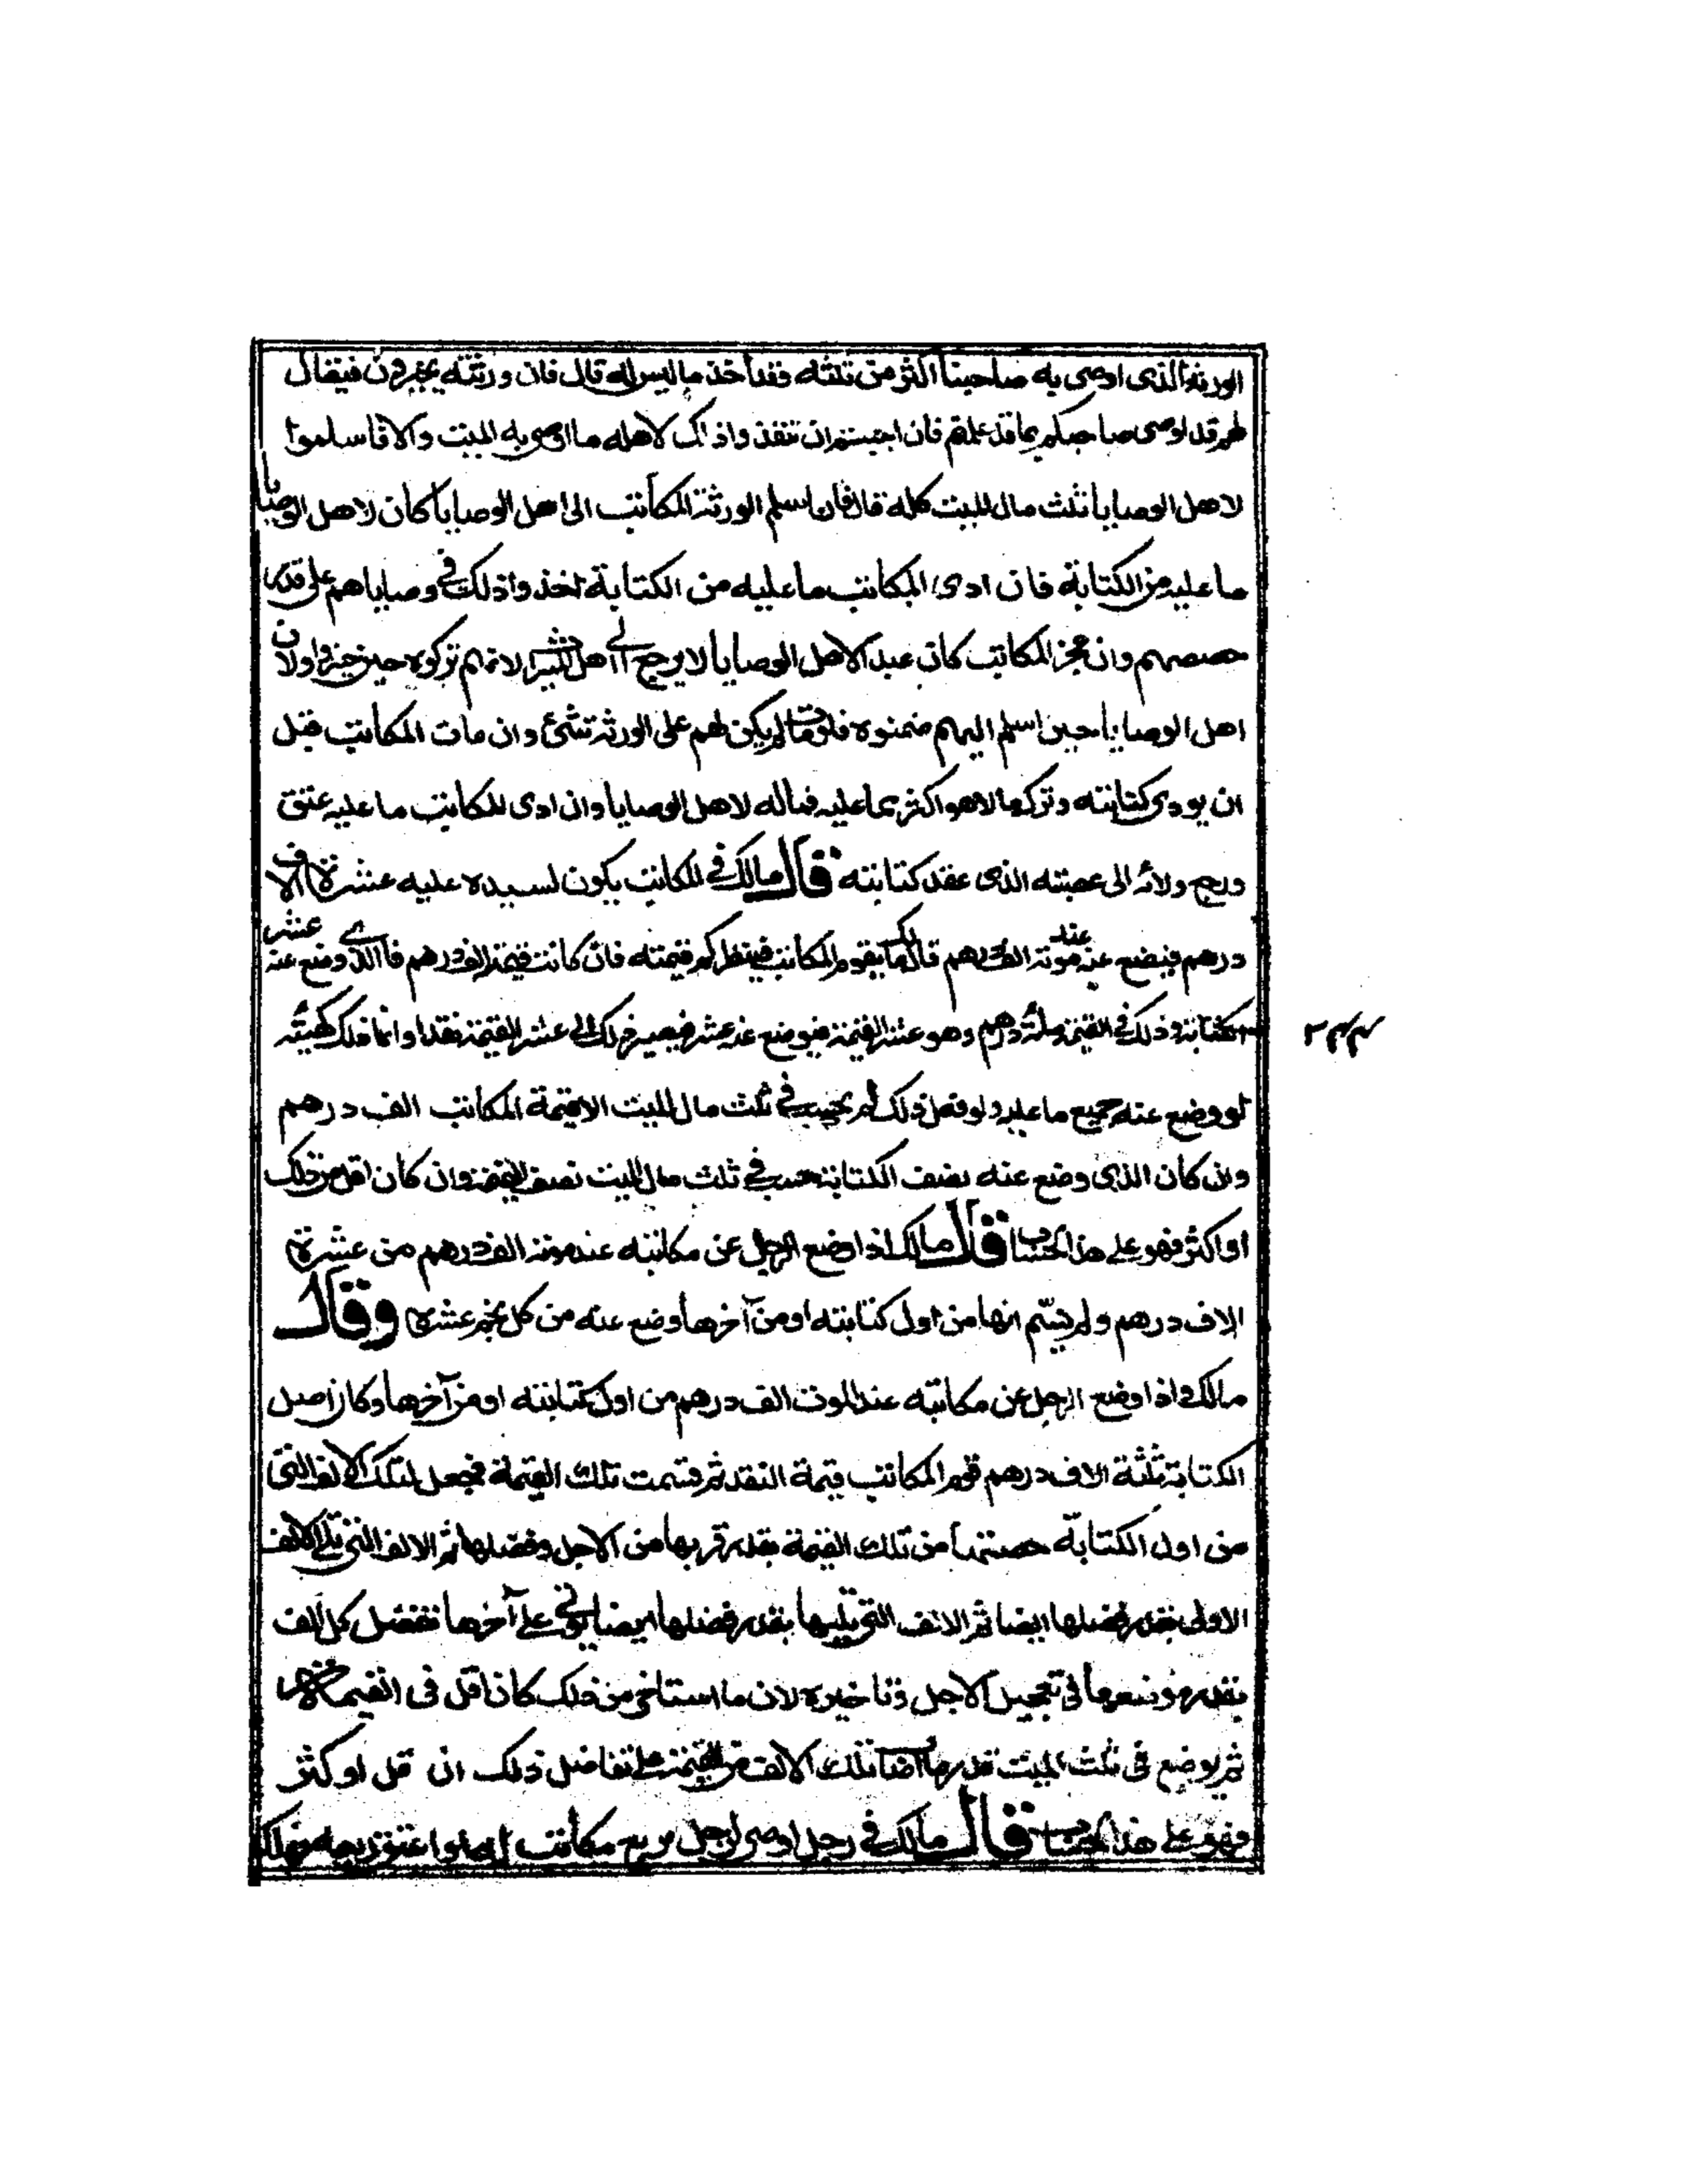 الورثة الذى اوصى به صاحبنا اكثر من ثلثه فقد اخذ ما ليس له قال فان ورثته يخيرون فيقال
لهم قد اوصى صاحبكم بما قد علمتم فان احببتم ان تنفذوا ذلك لاهله ما اوصى به الميت والا فاسلموا
لاهل الوصايا ثلث مال الميت كله قال فان اسلم الورثة المكاتب الى اهل الوصايا كان لاهل الوصايا
ما عليه من الكتابة فان ادى المكاتب ما عليه من الكتابة اخذوا ذلك فى وصاياهم على قدر
حصصهم وان عجز المكاتب كان عبدا لاهل الوصايا لا يرجع الى اهل الميراث لانهم تركوه حين خيروا ولان
اهل الوصايا حين اسلم اليهم ضمنوه فلو مات لم يكن لهم على الورثة شئ وان مات المكاتب قبل
ان يودى كتابته وترك مالا هو اكثر مما عليه فماله لاهل الوصايا وان ادى المكاتب ما عليه عتق
ورجع ولائه الى عصبته الذى عقد كتابته قال مالك فى المكاتب يكون لسيده عليه عشرة الاف
درهم فيضع عنه عند موته الف درهم قال مالك يقوم المكاتب فينظر كم قيمته فان كانت قيمته الف درهم فالذى وضع عنه عشر
الكتابة وذلك فى القيمة مائة درهم وهو عشر القيمة فيوضع عنه عشر فيصير ذلك الى عشر القيمة نقدا وانما ذلك كهيئته
لو وضع عنه جميع ما عليه ولو فعل ذلك لم يحسب فى ثلث مال الميت الا قيمة المكاتب الف درهم
وان كان الذى وضع عنه نصف الكتابة حسب فى ثلث مال الميت نصف القيمة وان كان اقل من ذلك
او اكثر فهو على هذا الحساب قال مالك اذا وضع الرجل عن مكاتبه عند موته الف درهم من عشرة
الاف درهم ولم يسم انها من اول كتابته او من آخرها وضع عنه من كل نجم عشره وقال
مالك واذا وضع الرجل عن مكاتبه عند الموت الف درهم من اول كتابته او من آخرها وكان اصل
الكتابة ثلثة الاف درهم قوم المكاتب قيمة النقد ثم قسمت تلك القيمة فجعل لتلك الالف التى
من اول الكتابة حصتها من تلك القيمة بقدر قربها من الاجل وفضلها ثم الالف التى تلى الالف
الاولى بقدر فضلها ايضا ثم الالف التى تليها بقدر فضلها ايضا يوتى على آخرها تفضل كل الف
بقدر موضعها فى تعجيل الاجل وتاخيره لان ما استاخر من ذلك كان اقل فى القيمة
ثم يوضع فى ثلث الميت قدر ما اصاب تلك الالف من القيمة على تفاضل ذلك ان قل او كثر
وهو على هذا الحساب قال مالك فى رجل اوصى لرجل بربع مكاتب